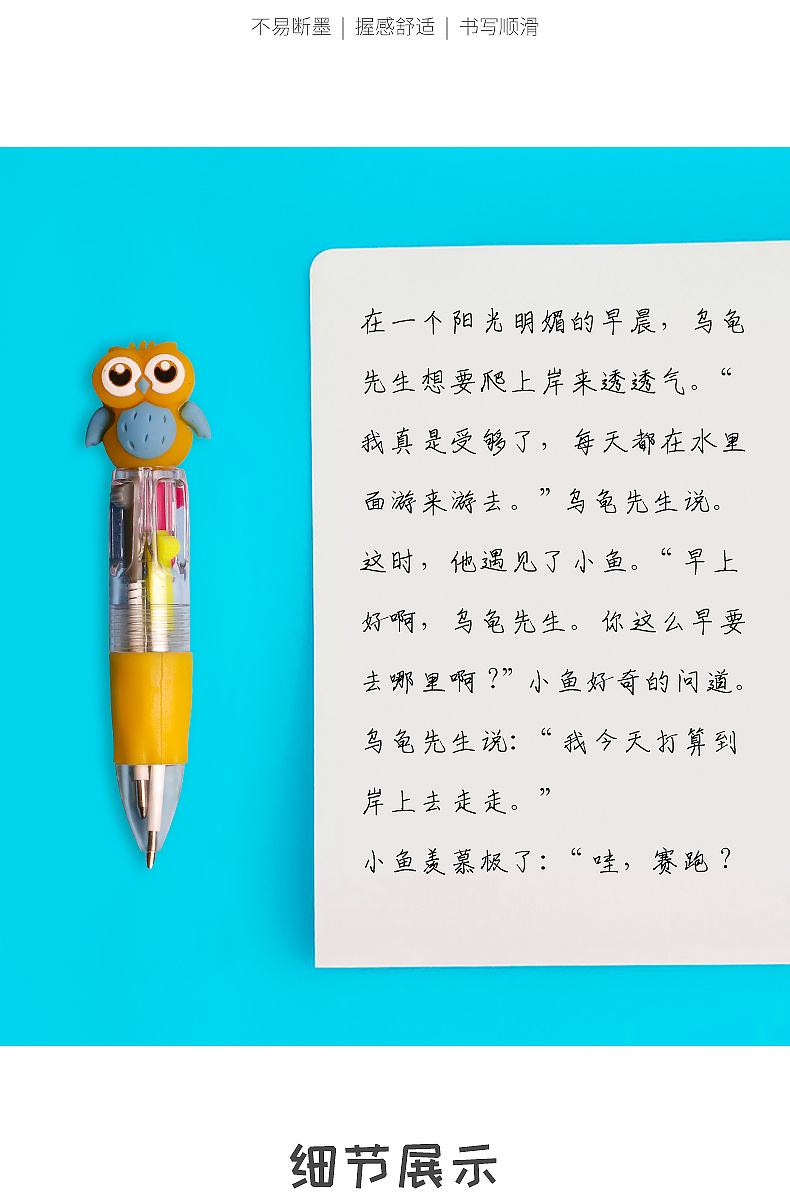 不易断墨 | 握感舒适 | 书写顺滑
在一个阳光明媚的早晨，乌龟
先生想要爬上岸来透透气。“
我真是受够了，每天都在水里
面游来游去。”乌龟先生说。
这时，他遇见了小鱼。“早上
好啊，乌龟先生。你这么早要
去哪里啊？”小鱼好奇的问道。
乌龟先生说：“我今天打算到
岸上去走走。”
小鱼羡慕极了：“哇，赛跑？
细节展示